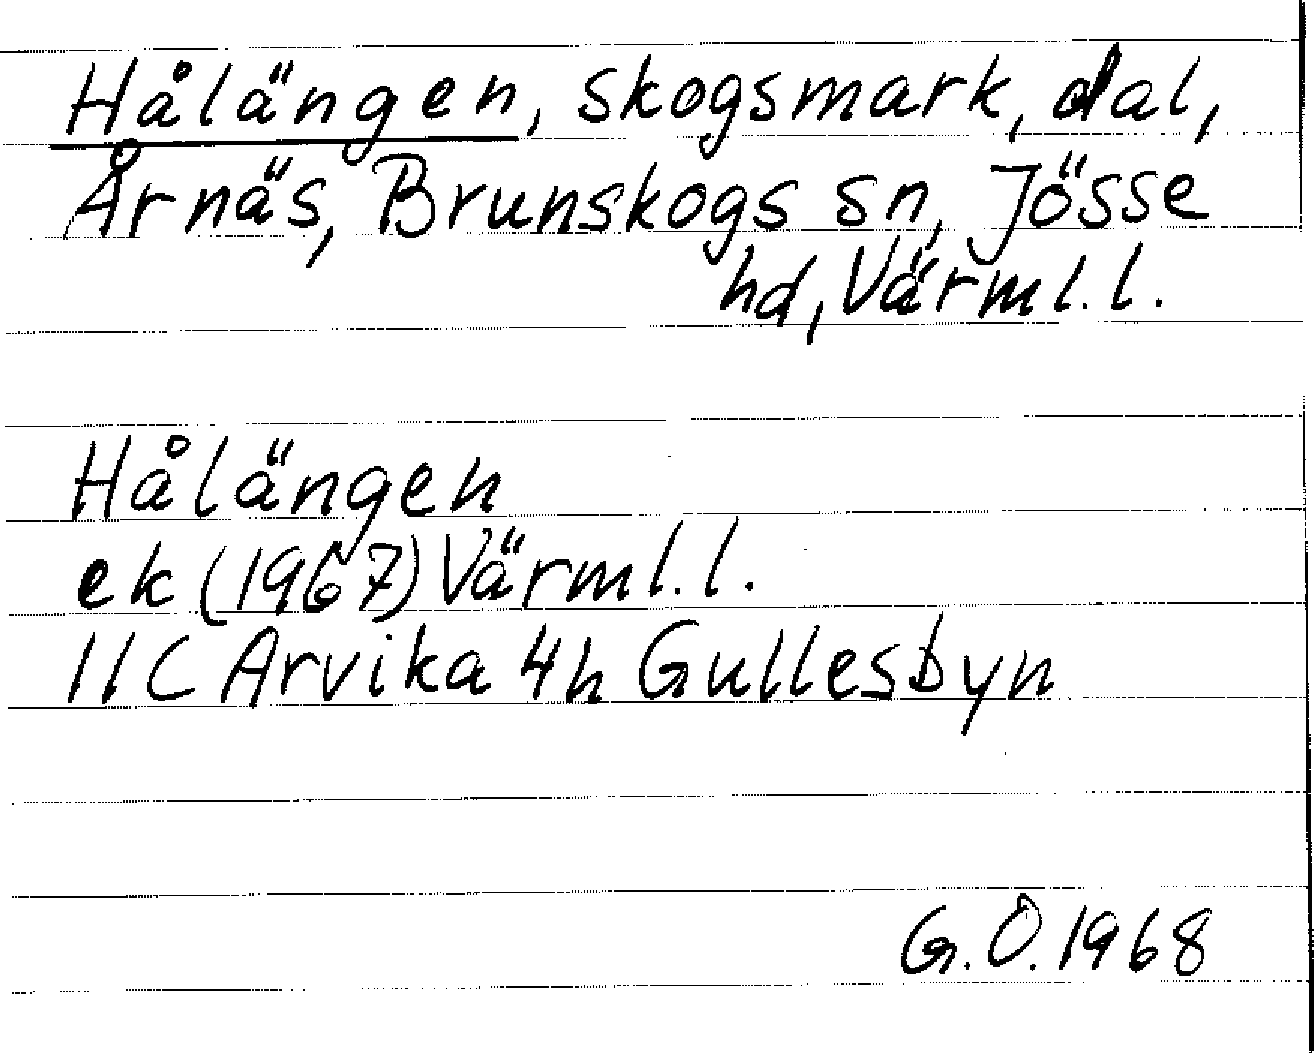 Hålängen, skogsmark, dal,
Årnäs, Brunskogs sn, Jösse
hd, Värml. l.
Hålängen
ek (1967) Värml. l.
11C Arvika 4h Gullesbyn
G.O. 1968